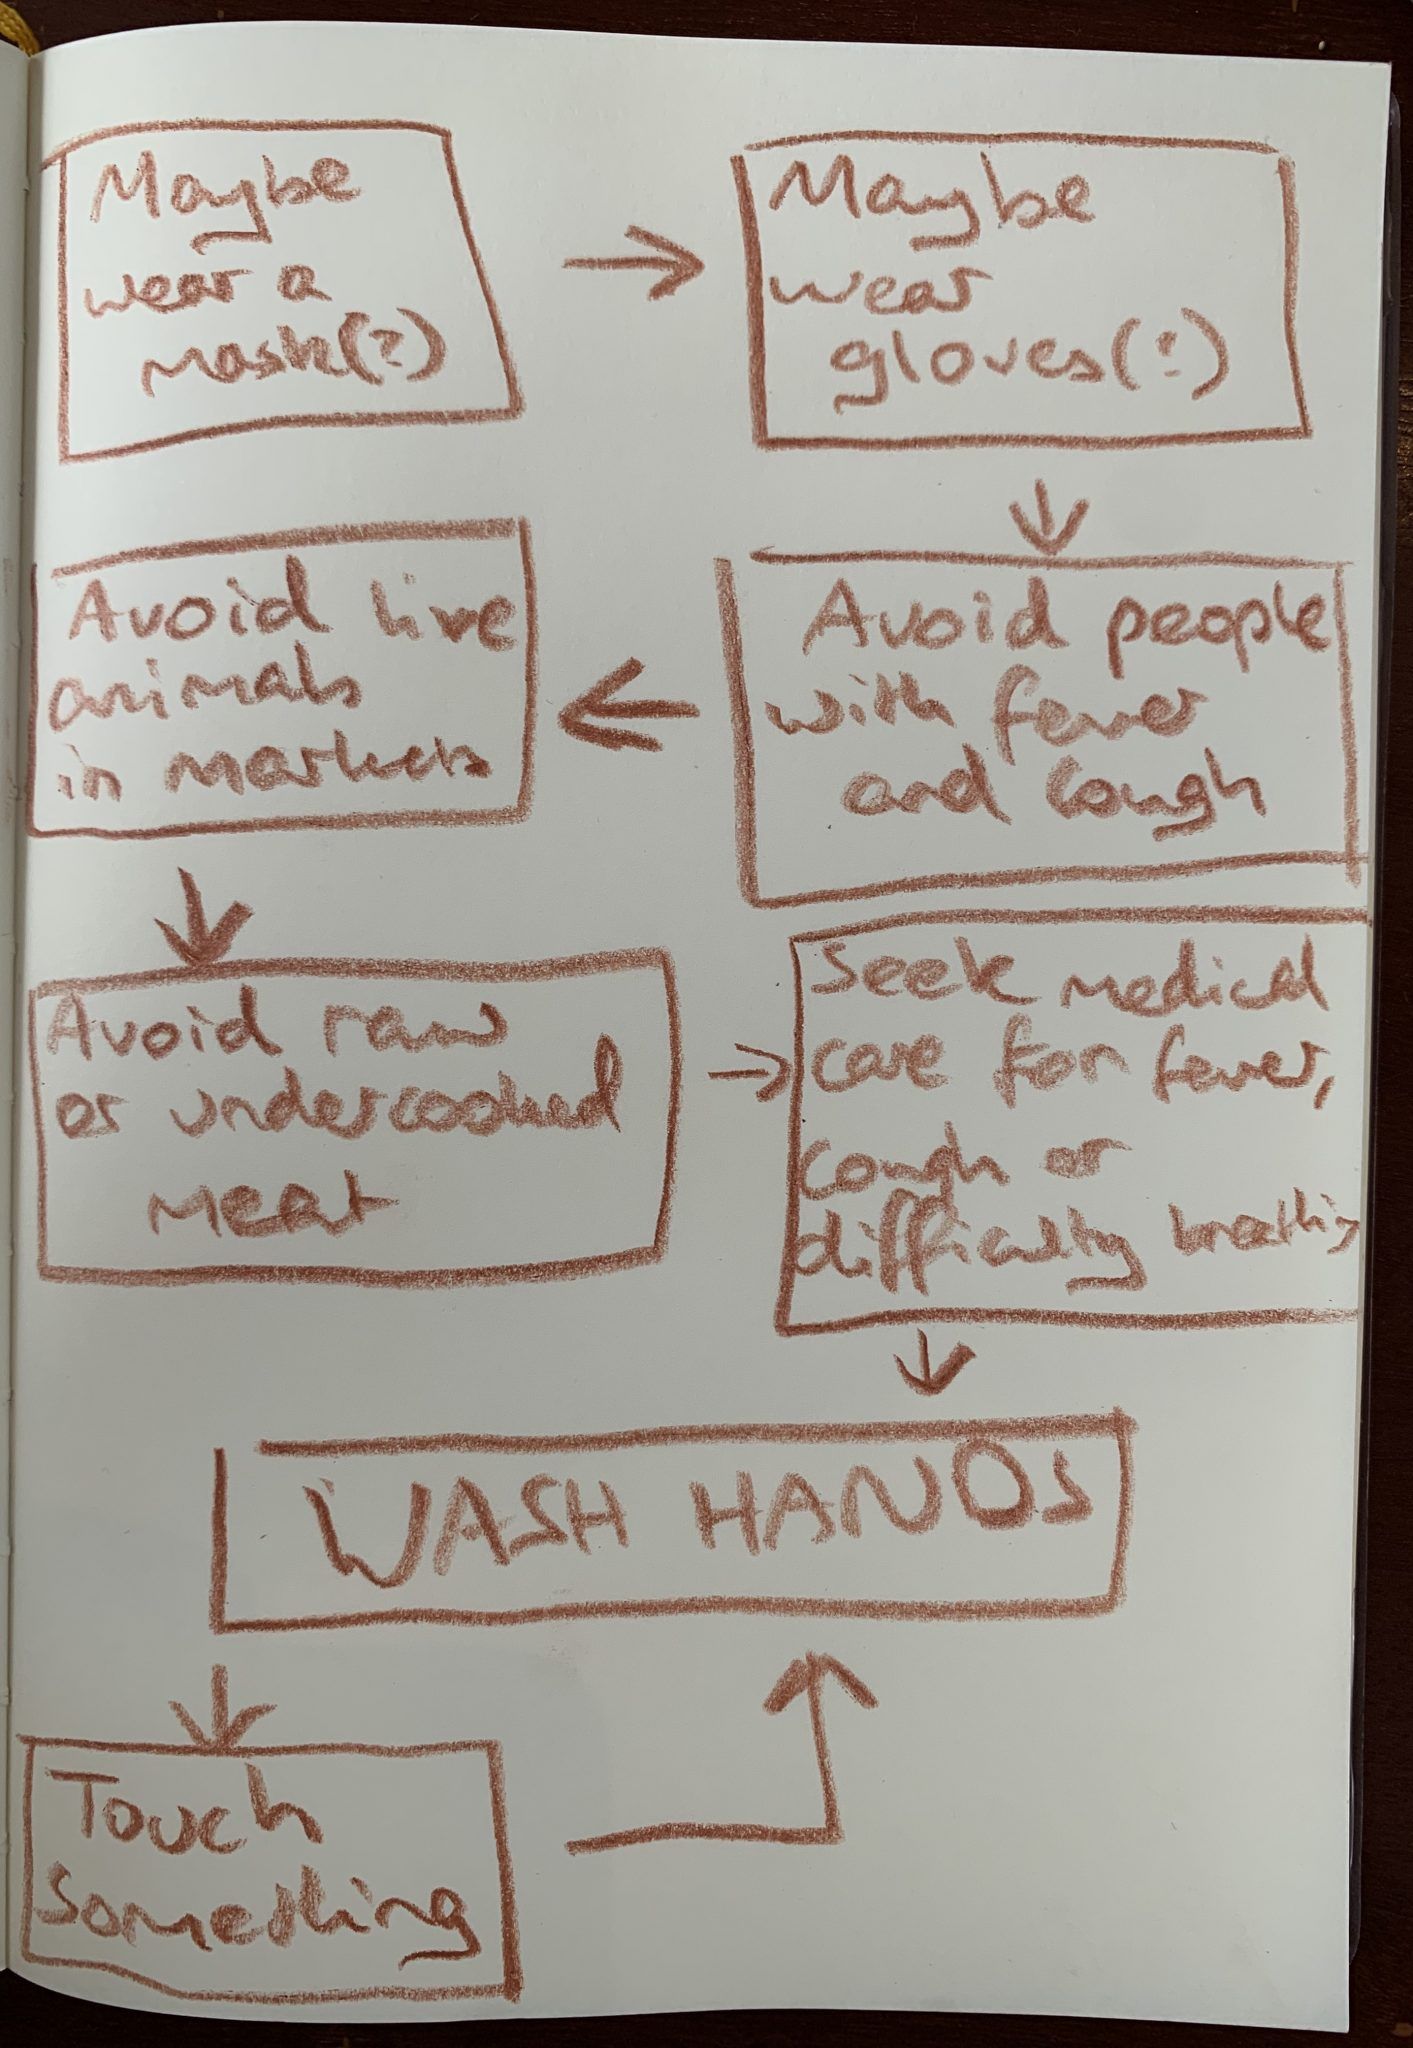 Maybe
wear a
mask(?)
Maybe
wear
gloves(?)
Avoid people
with fever
and cough
Avoid live
animals
in markets
Avoid raw
or undercooked
meat
Seek medical
care for fever,
cough or
difficulty breathing
WASH HANDS
Touch
something